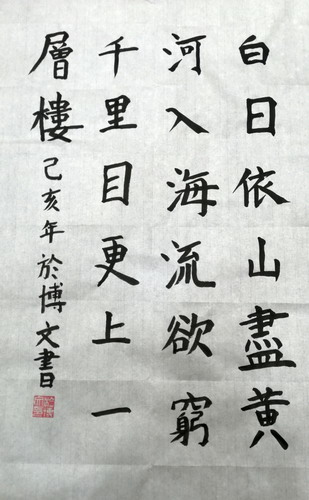 白日依山盡黄
河入海流欲窮
千里目更上一
層樓己亥年於博文書